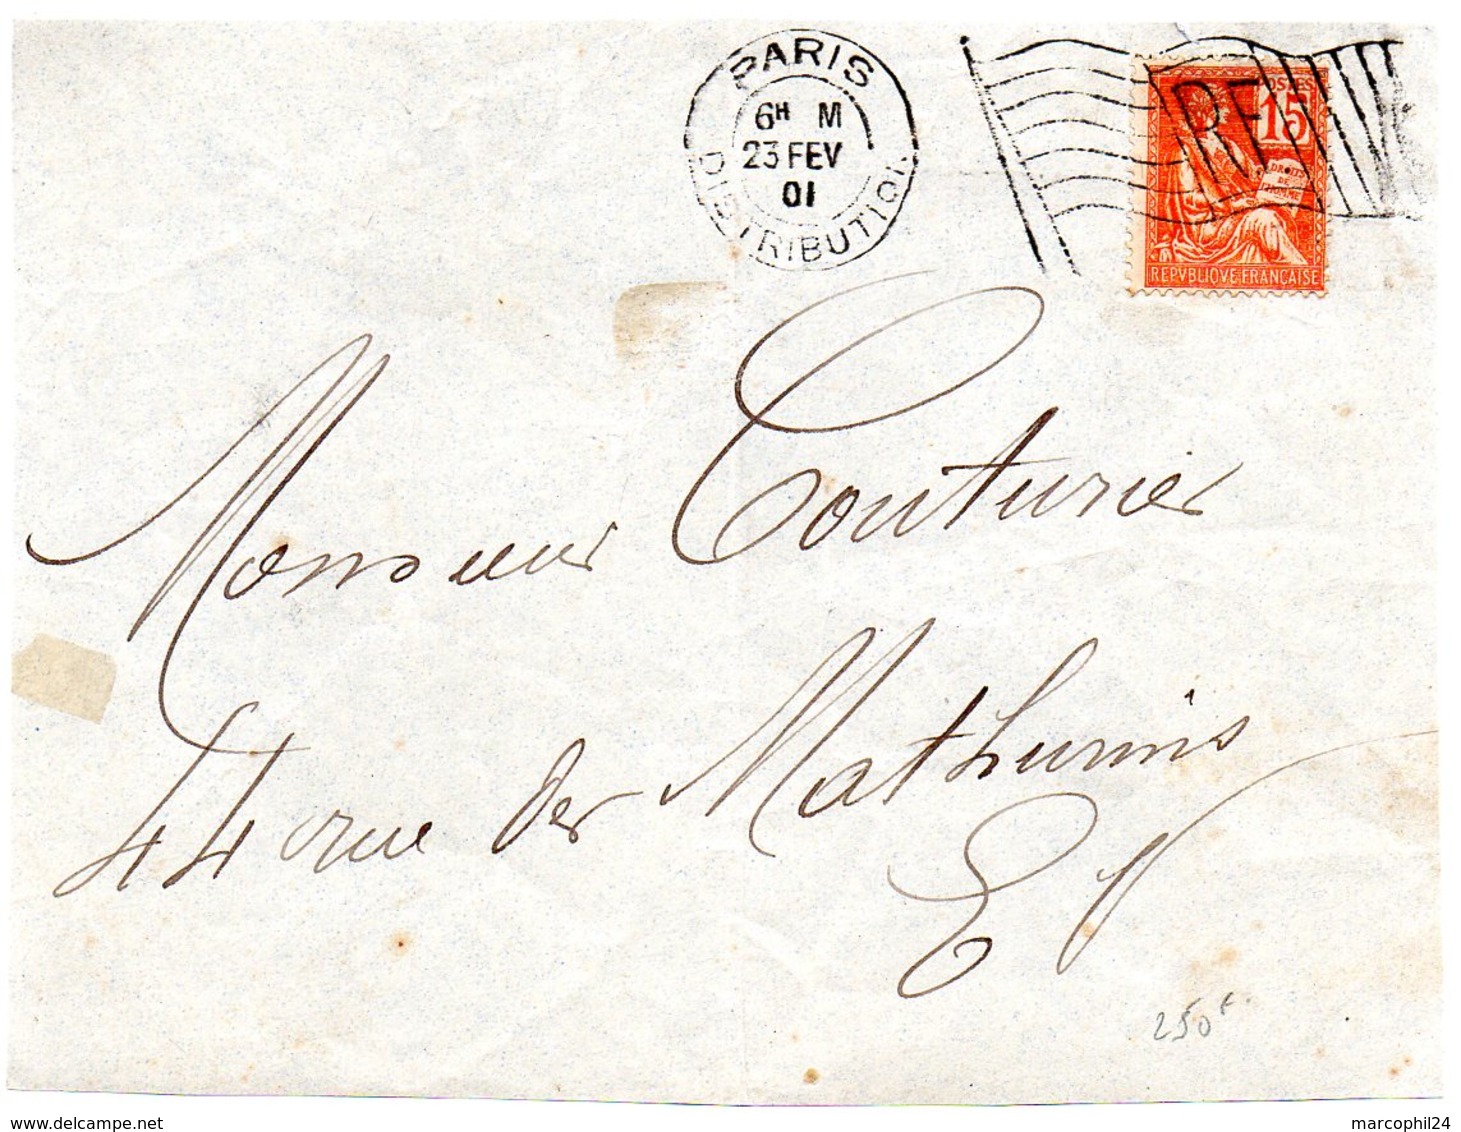 PARIS
6H M
23 FEV
01
DISTRIBUTION
RF
POSTES
15
DROITS
DE
L'HOMME
REPVBLIQVE FRANÇAISE
Monsieur Couturier
44 rue des Mathurins
EV
250 F
marcophil24